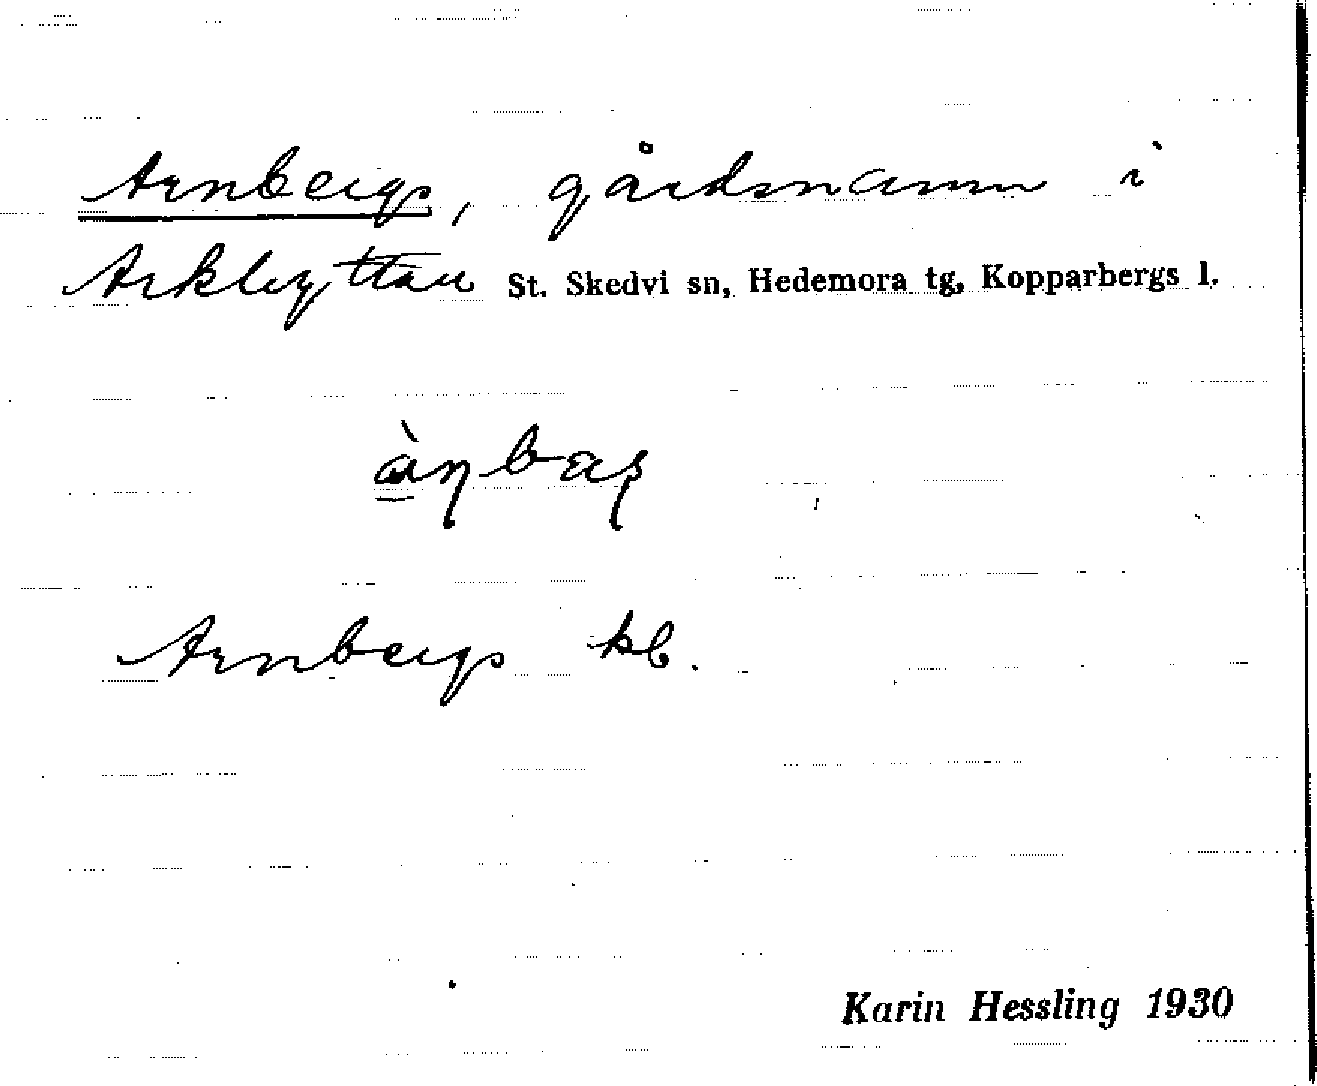 Arnbergs, gårdsnamn i
Arkhyttan St. Skedvi sn, Hedemora tg, Kopparbergs l.
Arnbergs kb.
Karin Hessling 1930